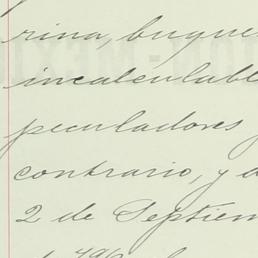 rina, buque
incalculabl
peculadores y
contrario, y a
2 de Septiem